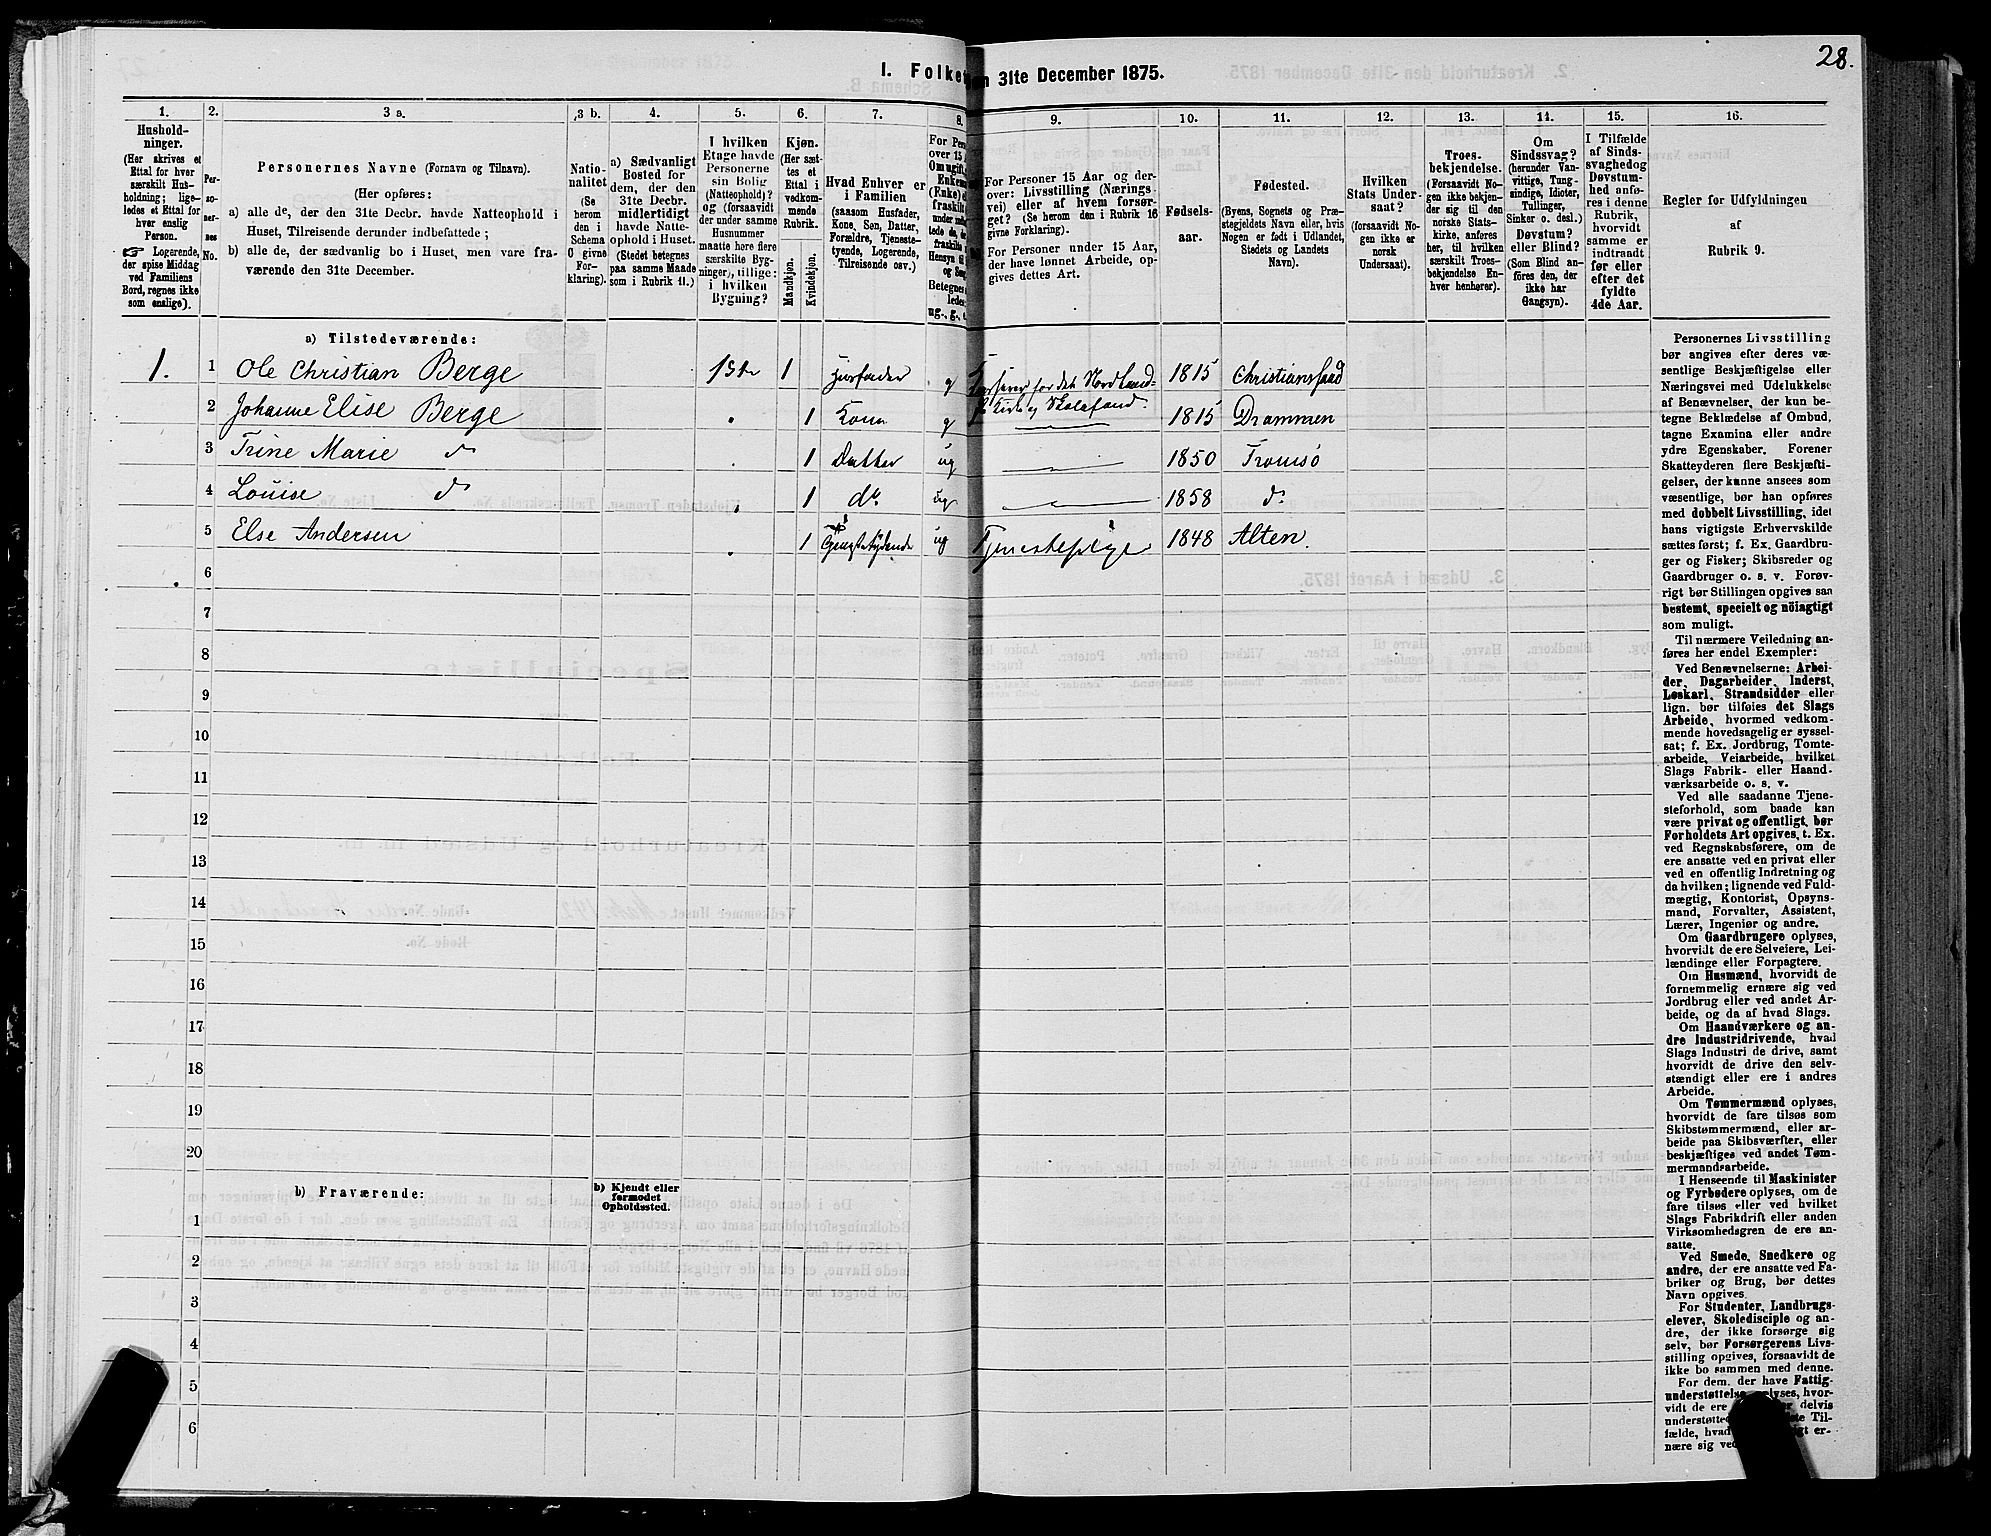 28.
I. Folket
n 31te December 1875.
1.
Hushold-
ninger.
(Her skrives et
Ettal for hver
særskilt Hus-
holdning; lige-
ledes et Ettal for
hver enslig
Person.
☞ Logerende,
der spise Middag
ved Familiens
Bord, regnes ikke
som enslige).
2.
Per-
so-
ner-
nes
No.
3 a.
Personernes Navne (Fornavn og Tilnavn).
(Her opføres:
a) alle de, der den 31te Decbr. havde Natteophold i
Huset, Tilreisende derunder indbefattede;
b) alle de, der sædvanlig bo i Huset, men vare fra-
værende den 31te December.
3 b.
Natio-
nalitet
(Se
herom
den i
Schema
O givne
For-
klaring).
4.
a) Sædvanligt
Bosted for
dem, der den
31te Decbr.
midlertidigt
havde Natte-
ophold i Huset.
(Stedet betegnes
paa samme Maade
som i Rubrik 11.)
5.
I hvilken
Etage havde
Personerne
sin Bolig
(Natteophold)?
og (forsaavidt
der under samme
Husnummer
maatte høre flere
særskilte Byg-
ninger), tillige:
i hvilken
Bygning?
6.
Kjøn.
(Her sæt-
tes et
Ettal i
vedkom-
mende
Rubrik.
Mandkjøn.
Kvindekjøn.
7.
Hvad Enhver er
i Familien
(saasom Husfader,
Kone, Søn, Datter,
Forældre, Tjeneste-
tyende, Logerende,
Tilreisende osv.)
8.
For Pers
over 15
Om ugift,
Enkem
(Enke) e
fraskilt
9.
For Personer 15 Aar og der-
over: Livsstilling (Nærings-
vei) eller af hvem forsør-
get? (Se herom den i Rubrik 16
givne Forklaring).
For Personer under 15 Aar,
der have lønnet Arbeide, op-
gives dettes Art.
10.
Fødsels-
aar.
11.
Fødested.
(Byens, Sognets og Præ-
stegjeldets Navn eller, hvis
Nogen er født i Udlandet,
Stedets og Landets
Navn).
12.
Hvilken
Stats Under-
saat?
(forsaavidt No-
gen ikke er
norsk
Undersaat).
13.
Troes-
bekjendelse.
(Forsaavidt No-
gen ikke bekjen-
der sig til den
norske Stats-
kirke, anføres
her, til hvilken
særskilt Troes-
bekjendelse En-
hver henhører).
14.
Om
Sindssvag?
(herunder Van-
vittige, Tung-
sindige, Idioter,
Tullinger,
Sinker o. desl.)
Døvstum?
eller Blind?
(Som Blind an-
føres den, der
ikke har
Gangsyn).
15.
I Tilfælde
af Sinds-
svaghed og
Døvstum-
hed anfø-
res i denne
Rubrik,
hvorvidt
samme er
indtraadt
før eller
efter det
fyldte
4de Aar.
16.
Regler for Udfyldningen
af
Rubrik 9.
a) Tilstedeværende:
1. 1 Ole Christian Berge 1ste 1 Husfader g for det Nordland- 1815 Christianssand
2 Johanne Elise Berge 1 Kone g Skolefond. 1815 Drammen
3 Trine Marie do 1 Datter ug 1850 Tromsø
4 Louise do 1 do ug 1858 do
5 Else Andersen 1 ug Tjenestepige 1848 Alten.
6
7
8
9
10
11
12
13
14
15
16
17
18
19
20
b) Fraværende:
b) Kjendt eller
formodet
Opholdssted.
1
2
3
4
5
6
Personernes Livsstilling
bør angives efter deres væ-
sentlige Beskjæftigelse eller
Næringsvei med Udelukkelse
af Benævnelser, der kun be-
tegne Beklædelse af Ombud,
tagne Examina eller andre
ydre Egenskaber. Forener
Skatteyderen flere Beskjæfti-
gelser, der kunne ansees som
væsentlige, bør han opføres
med dobbelt Livsstilling, idet
hans vigtigste Erhvervskilde
sættes først; f. Ex. Gaardbru-
ger og Fisker; Skibsreder og
Gaardbruger o. s. v. Forøv-
rigt bør Stillingen opgives saa
bestemt, specielt og nöiagtigt
som muligt.
Til nærmere Veiledning an-
føres her endel Exempler:
Ved Benævnelserne: Arbei-
der, Dagarbeider, Inderst,
Løskarl, Strandsidder eller
lign. bør tilføies det Slags
Arbeide, hvormed vedkom-
mende hovedsagelig er syssel-
sat; f. Ex. Jordbrug, Tomte-
arbeide, Veiarbeide, hvilket
Slags Fabrik- eller Haand-
værksarbeide o. s. v.
Ved alle saadanne Tjene-
steforhold, som baade kan
være privat og offentligt, bør
Forholdets Art opgives, t. Ex.
ved Regnskabsførere, om de
ere ansatte ved en privat eller
ved en offentlig Indretning og
da hvilken; lignende ved Fuld-
mægtig, Kontorist, Opsyns-
mand, Forvalter, Assistent,
Lærer, Ingeniør og andre.
Om Gaardbrugere oplyses,
hvorvidt de ere Selveiere, Lei-
lændinge eller Forpagtere.
Om Husmænd, hvorvidt de
fornemmelig ernære sig ved
Jordbrug eller ved andet Ar-
beide, og da af hvad Slags.
Om Haandværkere og an-
dre Industridrivende, hvad
Slags Industri de drive, samt
hvorvidt de drive den selv-
stændigt eller ere i andres
Arbeide.
Om Tømmermænd oplyses,
hvorvidt de fare tilsøs som
Skibstømmermænd, eller ar-
beide paa Skibsværfter, eller
beskjæftiges ved andet Tøm-
mermandsarbeide.
I Henseende til Maskinister
og Fyrbødere oplyses, om de
fare tilsøs eller ved hvilket
Slags Fabrikdrift eller anden
Virksomhedsgren de ere an-
satte.
Ved Smede, Snedkere og
andre, der ere ansatte ved Fa-
briker og Brug, bør dettes
Navn opgives.
For Studenter, Landbrugs-
elever, Skoledisciple og an-
dre, der ikke forsørge sig
selv, bør Forsørgerens Livs-
stilling opgives, forsaavidt de
ikke bo sammen med denne.
For dem, der have Fattig-
understøttelse, oplyses, hvor-
vidt de ere delvis